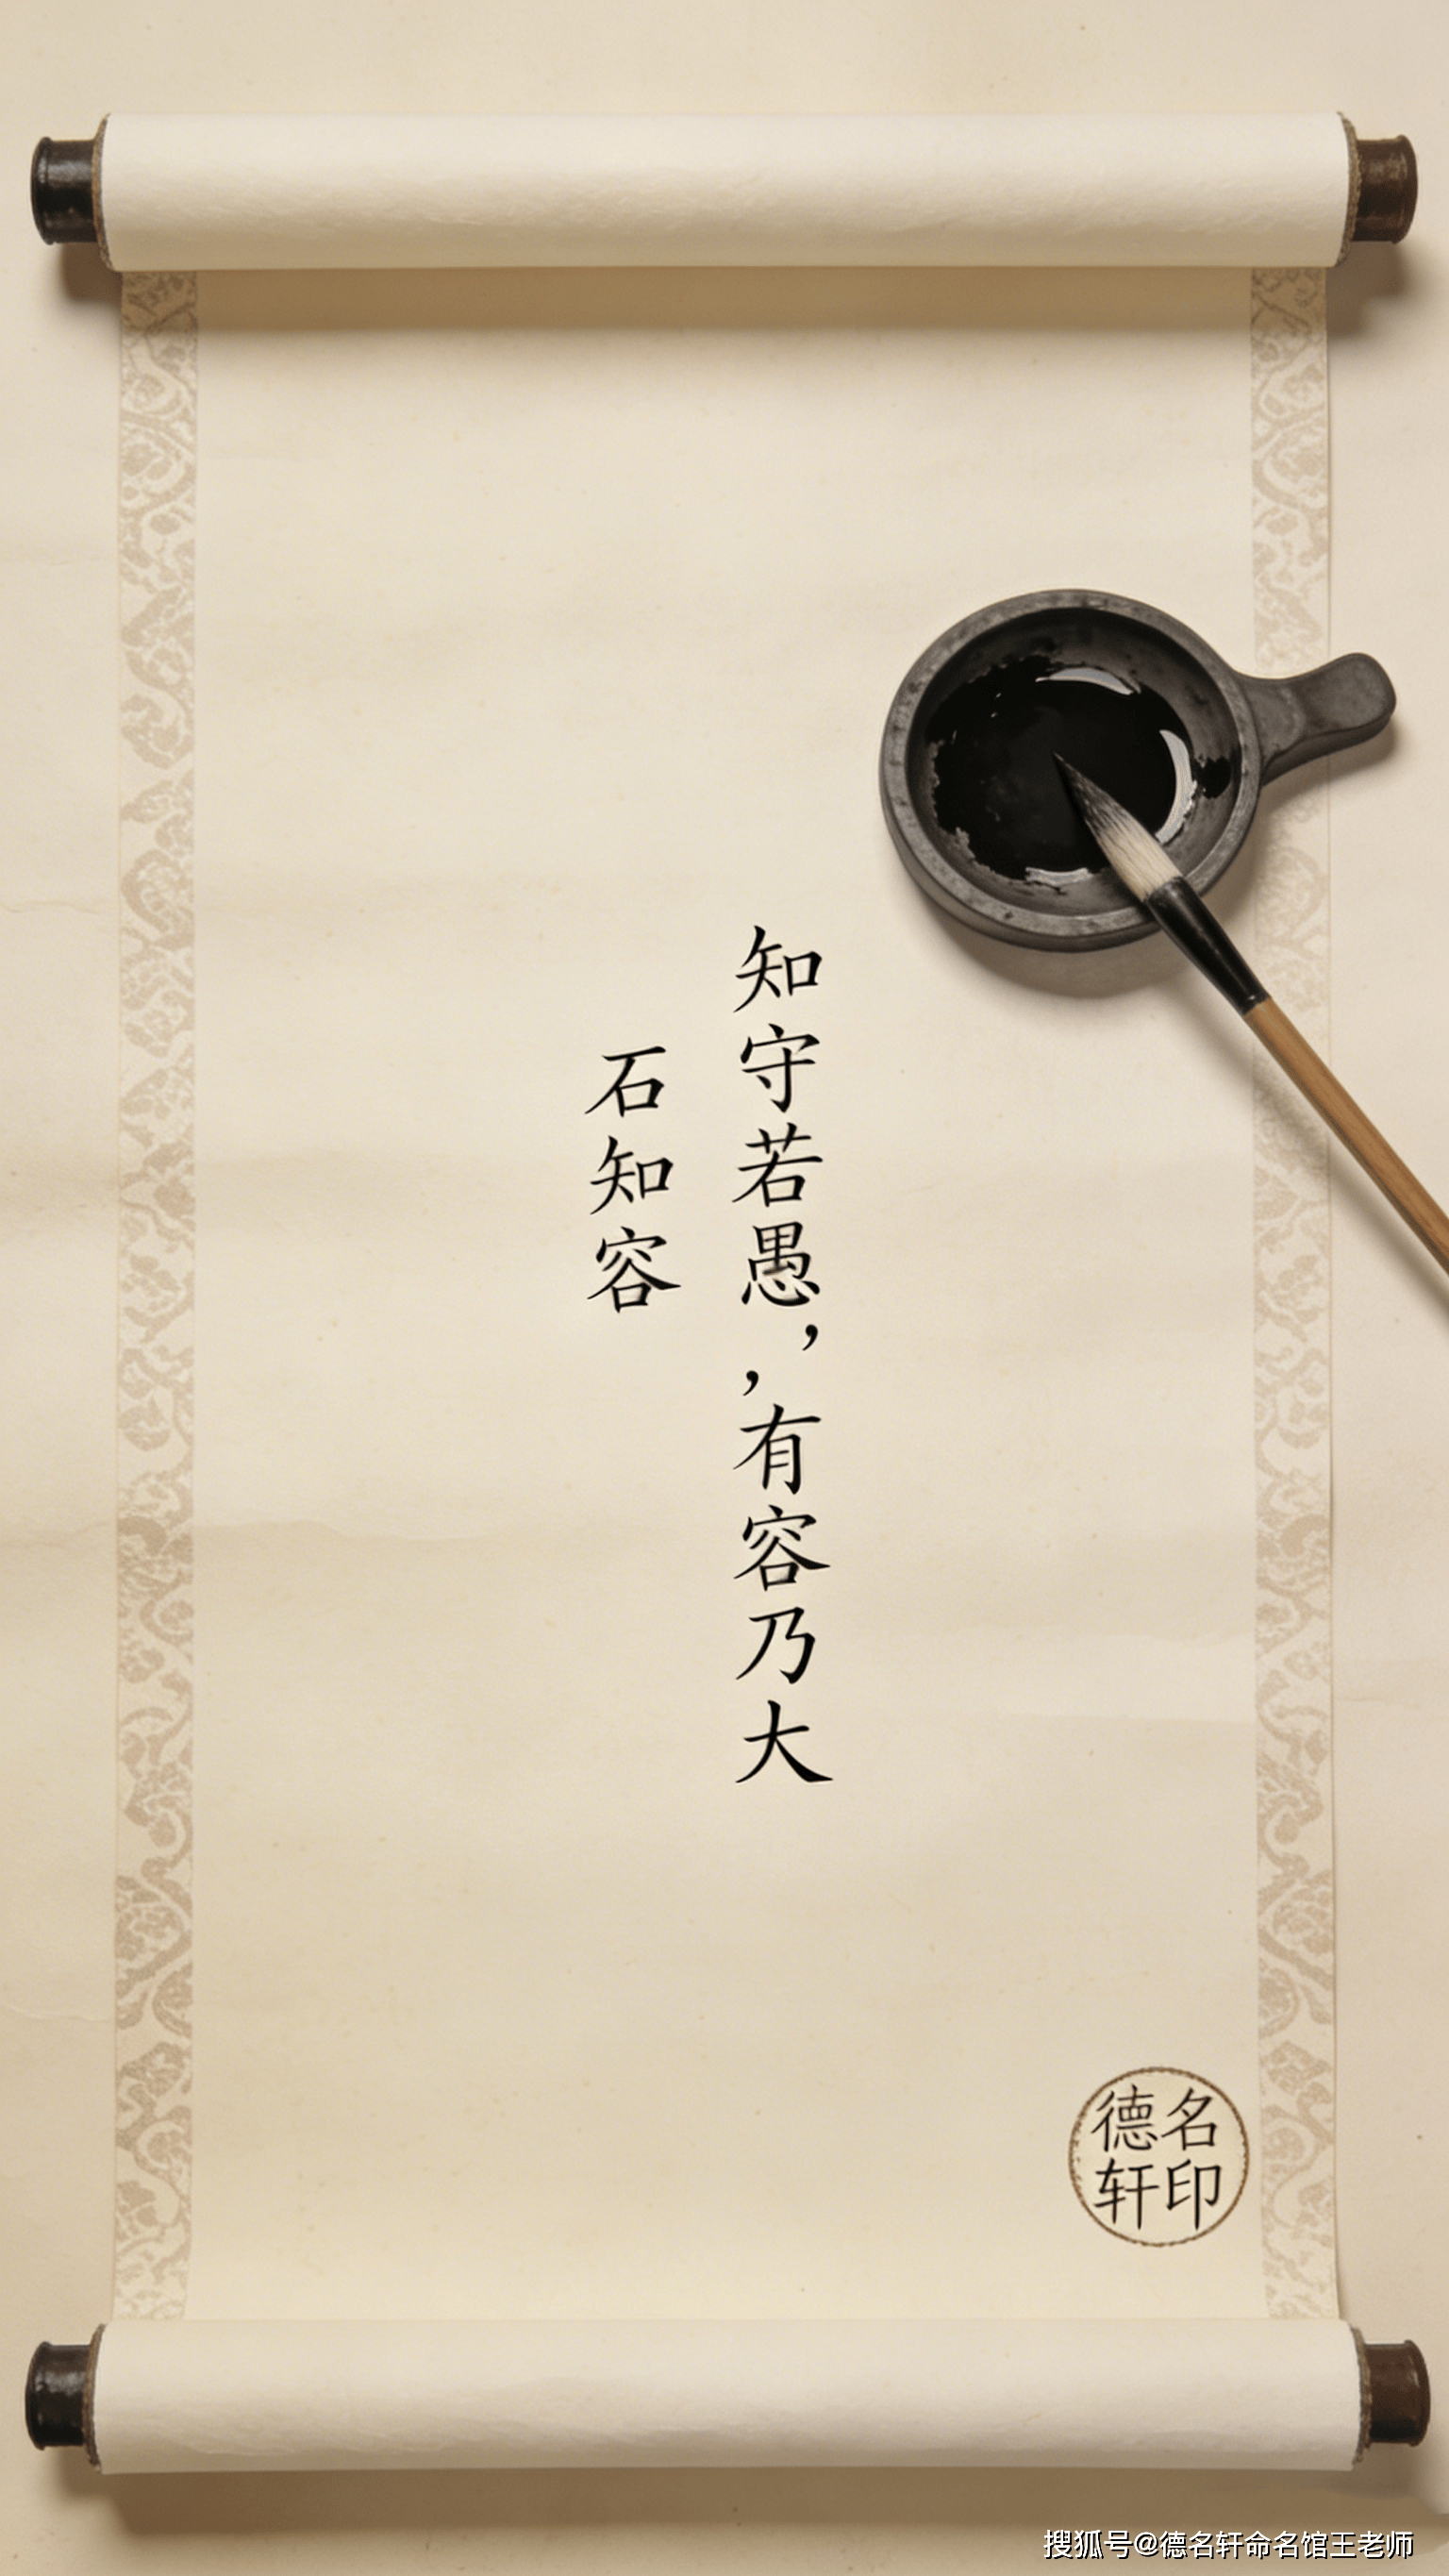 知守若愚，，有容乃大
石知容
德名
轩印
搜狐号@德名轩命名馆王老师